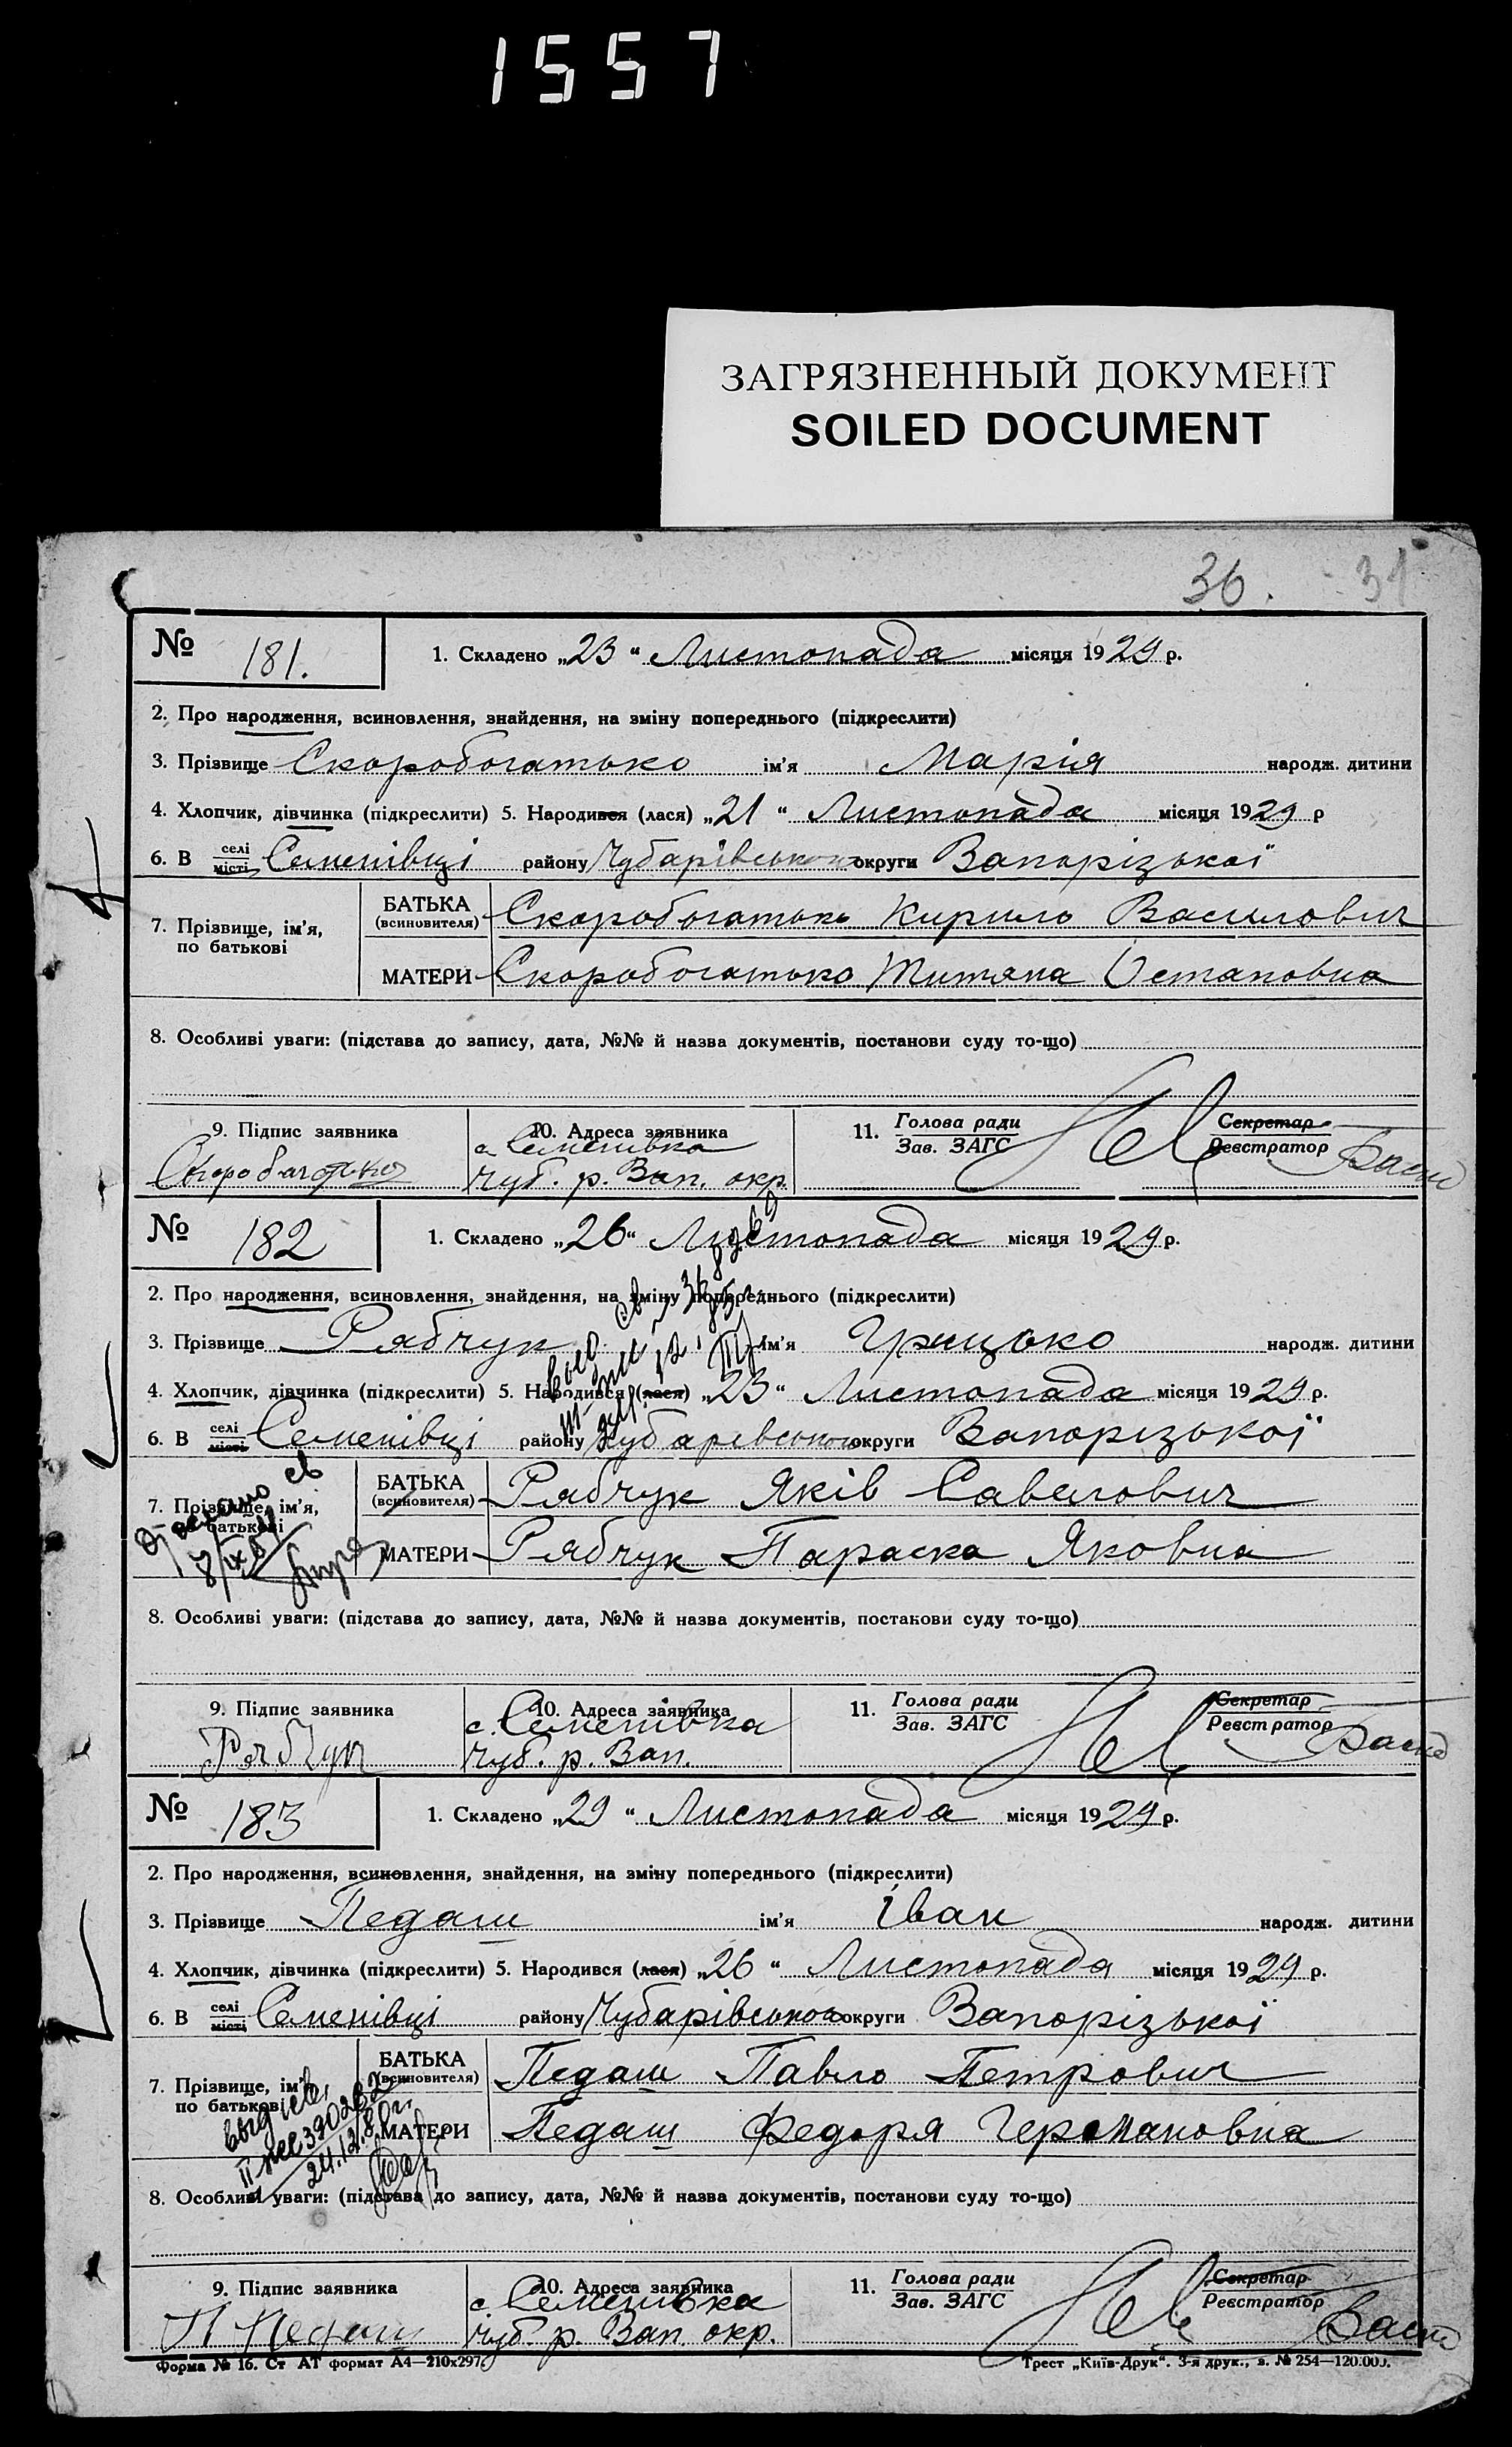 1557
ЗАГРЯЗНЕННЫЙ ДОКУМЕНТ
SOILED DOCUMENT
36. 31
№ 181. 1. Складено „23“ Листопада місяця 1929 р.
2. Про народження, всиновлення, знайдення, на зміну попереднього (підкреслити)
3. Прізвище Скоробогатько ім'я Марія народж. дитини
4. Хлопчик, дівчинка (підкреслити) 5. Народився (лася) „21“ Листопада місяця 1929 р
6. В селі місті Семенівці району Чубарівського округи Запорізької
7. Прізвище, ім'я, по батькові
БАТЬКА (всиновителя) Скоробогатько Кирило Василович
МАТЕРИ Скоробогатько Титяна Остаповна
8. Особливі уваги: (підстава до запису, дата, №№ й назва документів, постанови суду то-що)
9. Підпис заявника 10. Адреса заявника 11. Голова ради Зав. ЗАГС Секретар Реєстратор
с. Семенівка
Чуб. р. Зап. окр.
№ 182 1. Складено „26“ Листопада місяця 1929 р.
2. Про народження, всиновлення, знайдення, на зміну попереднього (підкреслити)
3. Прізвище Рябчук ім'я Грицько народж. дитини
4. Хлопчик, дівчинка (підкреслити) 5. Народився (лася) „23“ Листопада місяця 1929 р.
6. В селі місті Семенівці району Чубарівського округи Запорізької
7. Прізвище, ім'я, по батькові
БАТЬКА (всиновителя) Рябчук Яків Савелович
МАТЕРИ Рябчук Параска Яковна
8. Особливі уваги: (підстава до запису, дата, №№ й назва документів, постанови суду то-що)
9. Підпис заявника 10. Адреса заявника 11. Голова ради Зав. ЗАГС Секретар Реєстратор
с. Семенівка
Рябчук Чуб. р. Зап.
№ 183 1. Складено „29“ Листопада місяця 1929 р.
2. Про народження, всиновлення, знайдення, на зміну попереднього (підкреслити)
3. Прізвище Педаш ім'я Іван народж. дитини
4. Хлопчик, дівчинка (підкреслити) 5. Народився (лася) „26“ Листопада місяця 1929 р.
6. В селі місті Семенівці району Чубарівського округи Запорізької
7. Прізвище, ім'я, по батькові
БАТЬКА (всиновителя) Педаш Павло Петрович
МАТЕРИ Педаш Федоря Германовна
8. Особливі уваги: (підстава до запису, дата, №№ й назва документів, постанови суду то-що)
9. Підпис заявника 10. Адреса заявника 11. Голова ради Зав. ЗАГС Секретар Реєстратор
с. Семенівка
П Педаш Чуб. р. Зап. окр.
Форма № 16. Ст АТ формат А4—210х297 Трест „Київ-Друк“. 3-я друк., з. № 254—120.000.